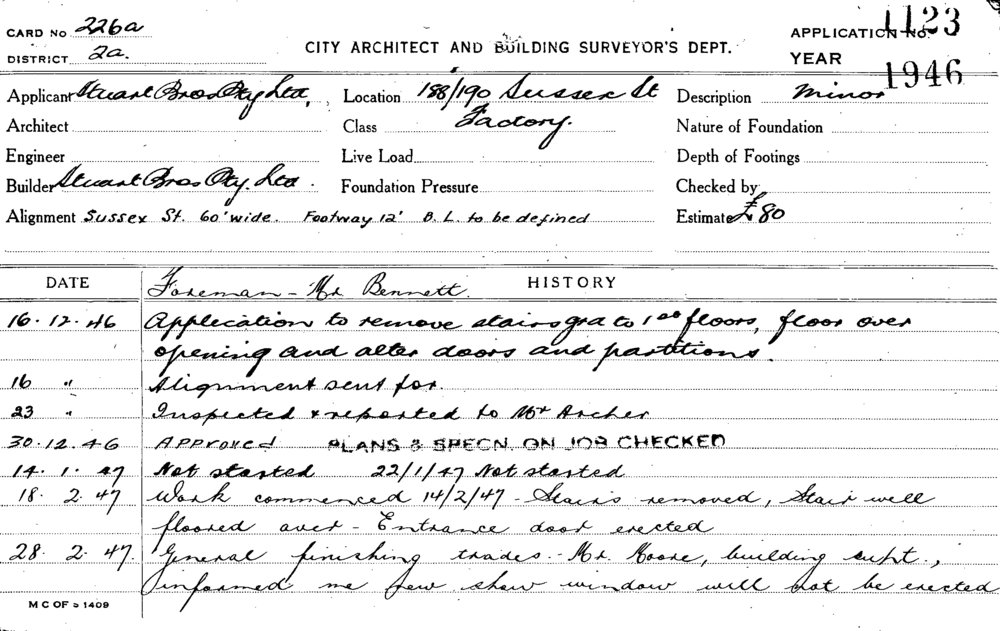 CARD No 226a
DISTRICT 2a.
CITY ARCHITECT AND BUILDING SURVEYOR'S DEPT.
APPLICATION No. 1123
YEAR 1946
Applicant Stuart Bros Pty Ltd,
Location 188/190 Sussex St
Description Minor
Architect
Class Factory.
Nature of Foundation
Engineer
Live Load
Depth of Footings
Builder Stuart Bros Pty. Ltd.
Foundation Pressure
Checked by
Alignment Sussex St. 60' wide. Footway 12' B. L. to be defined
Estimate £80
DATE
HISTORY
Foreman - Mr Bennett.
16.12.46 Application to remove stairs grd to 1st floors, floor over
opening and alter doors and partitions.
16 " Alignment sent for.
23 " Inspected & reported to Mr Archer
30.12.46 APPROVED PLANS & SPECN. ON JOB CHECKED
14.1.47 Not started 22/1/47 Not started
18.2.47 Work commenced 14/2/47 - Stairs removed, Stair well
floored over - Entrance door erected
28.2.47. General finishing trades - Mr. Moore, building supt.,
informed me new show window will not be erected
M C OF S 1409